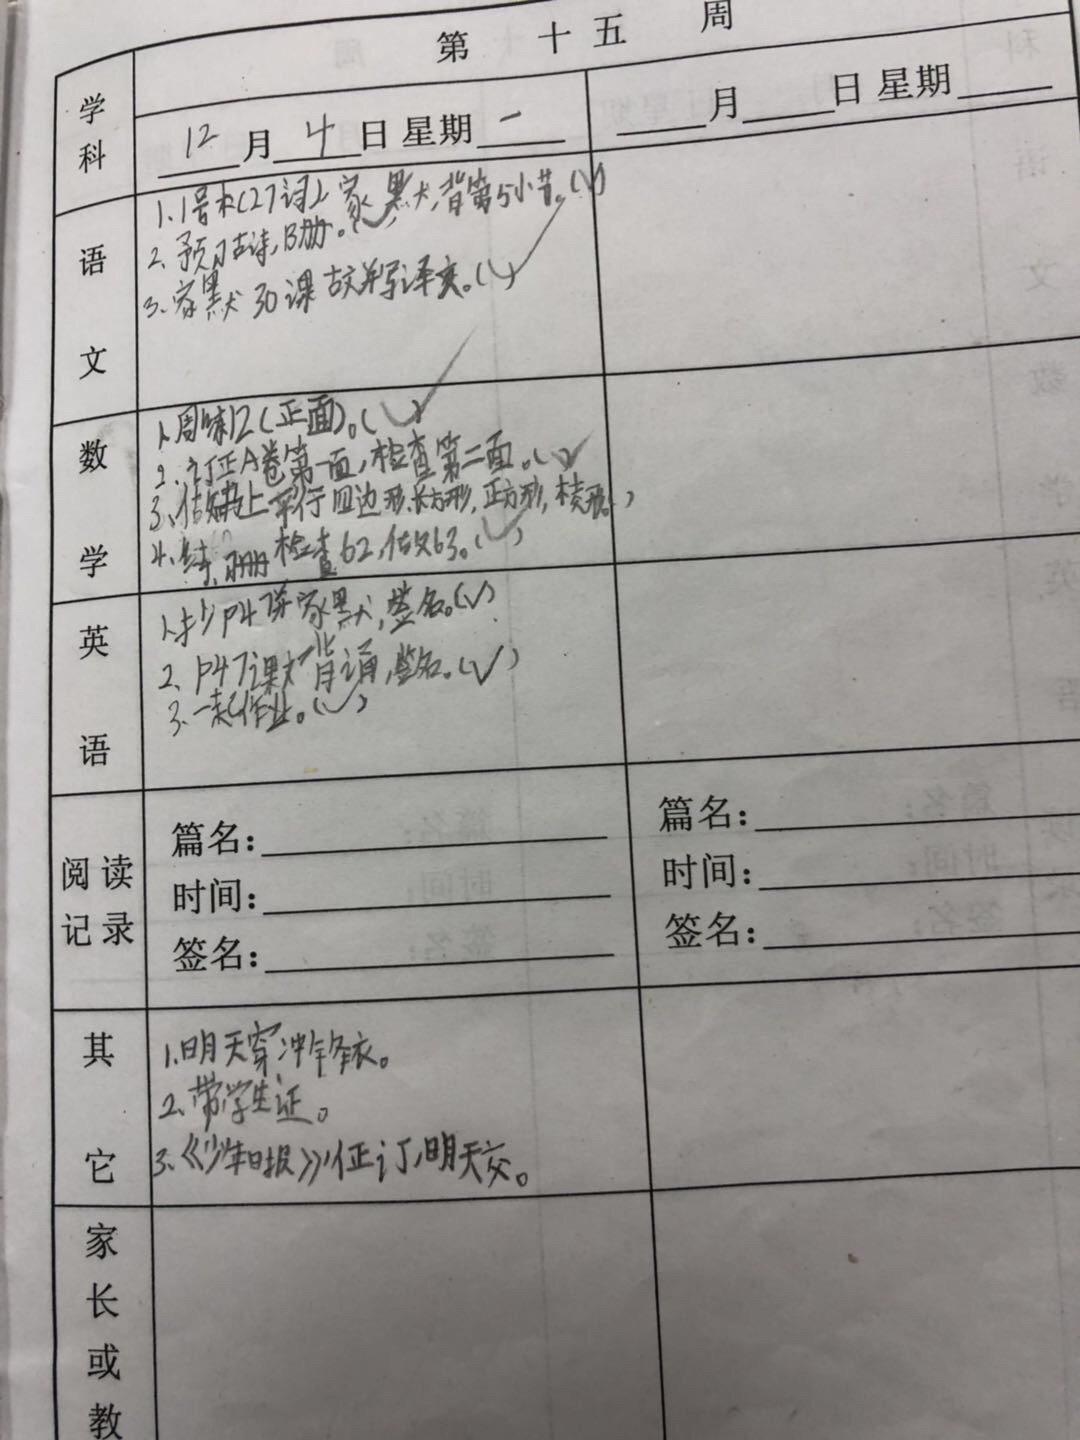 第 十五 周
学科
12月4日 星期一
月 日 星期
语文
1.1号本(27词)家默,背第5小节。(√)
2.预习古诗,B册。(√)
3.家默30课古文并写译文。(√)
数学
1.周练12(正面)。(√)
2.订正A卷第一面,检查第二面。(√)
3.平行四边形,长方形,正方形,
4.练册检查62,做63。(√)
英语
1.抄P47并家默,签名。(√)
2.P47课文背诵,签名。(√)
3.一起作业。(√)
阅读记录
篇名:
时间:
签名:
篇名:
时间:
签名:
其它
1.明天穿冲锋衣。
2.带学生证。
3.《少年日报》征订,明天交。
家长或教